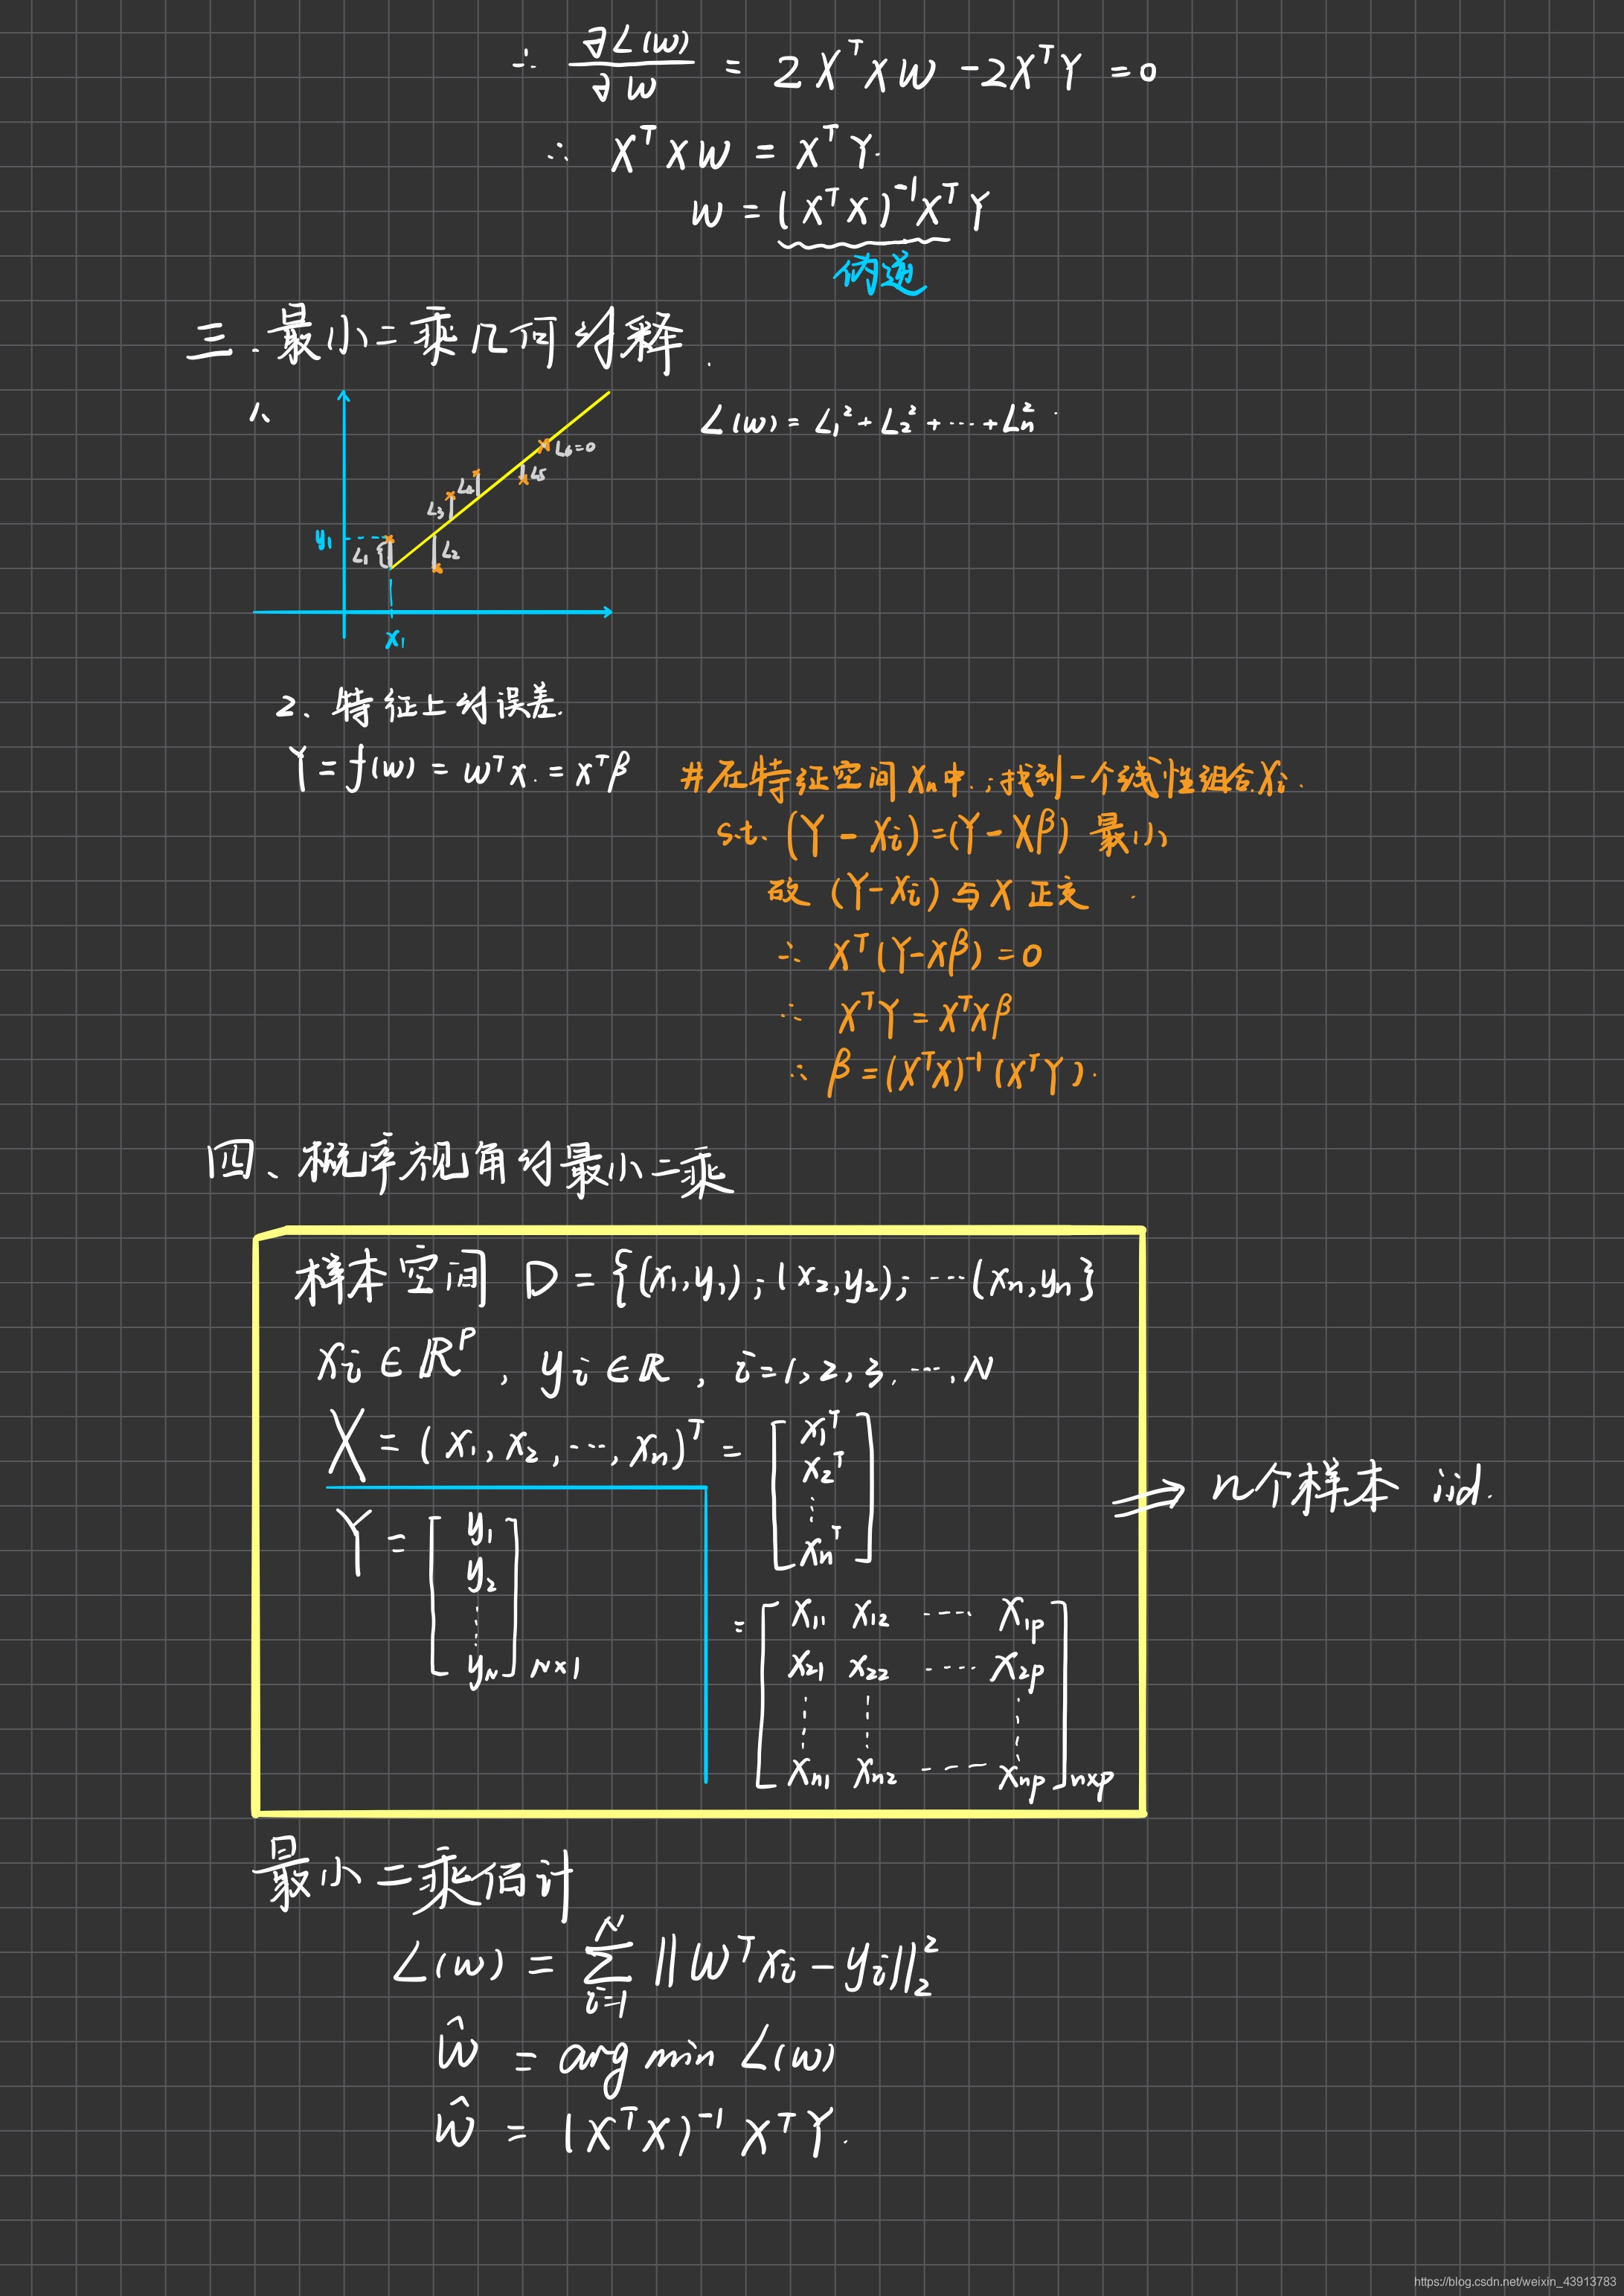 ∴ ∂L(w)/∂w = 2XᵀXW - 2XᵀY = 0
∴ XᵀXW = XᵀY.
w = (XᵀX)⁻¹XᵀY
伪逆
三.最小二乘几何解释.
1、
L(w) = L₁² + L₂² + ⋯ + Lₙ²
L₆=0
L₅
L₄
L₃
y₁
L₁
L₂
x₁
2、特征上的误差.
Y = f(w) = wᵀx. = xᵀβ
#在特征空间Xₙ中.;找到一个线性组合Xᵢ.
s.t. (Y - Xᵢ) = (Y - Xβ) 最小
故 (Y - Xᵢ) 与 X 正交
∴ Xᵀ(Y-Xβ) = 0
∴ XᵀY = XᵀXβ
∴ β = (XᵀX)⁻¹(XᵀY).
四、概率视角的最小二乘
样本空间 D = {(x₁,y₁);(x₂,y₂);⋯(xₙ,yₙ}
xᵢ ∈ ℝᴾ, yᵢ ∈ ℝ, i=1,2,3,⋯,N
X = (x₁,x₂,⋯,xₙ)ᵀ = [x₁ᵀ
x₂ᵀ
⋮
xₙᵀ]
⇒ n个样本 iid.
Y = [y₁
y₂
⋮
y_N] N×1
= [x₁₁ x₁₂ ⋯ x₁ₚ
x₂₁ x₂₂ ⋯ x₂ₚ
⋮ ⋮ ⋮
xₙ₁ xₙ₂ ⋯ xₙₚ] n×p
最小二乘估计
L(w) = ∑ᵢ₌₁ᴺ ||Wᵀxᵢ - yᵢ||₂²
ŵ = arg min L(w)
ŵ = (XᵀX)⁻¹XᵀY.
https://blog.csdn.net/weixin_43913783